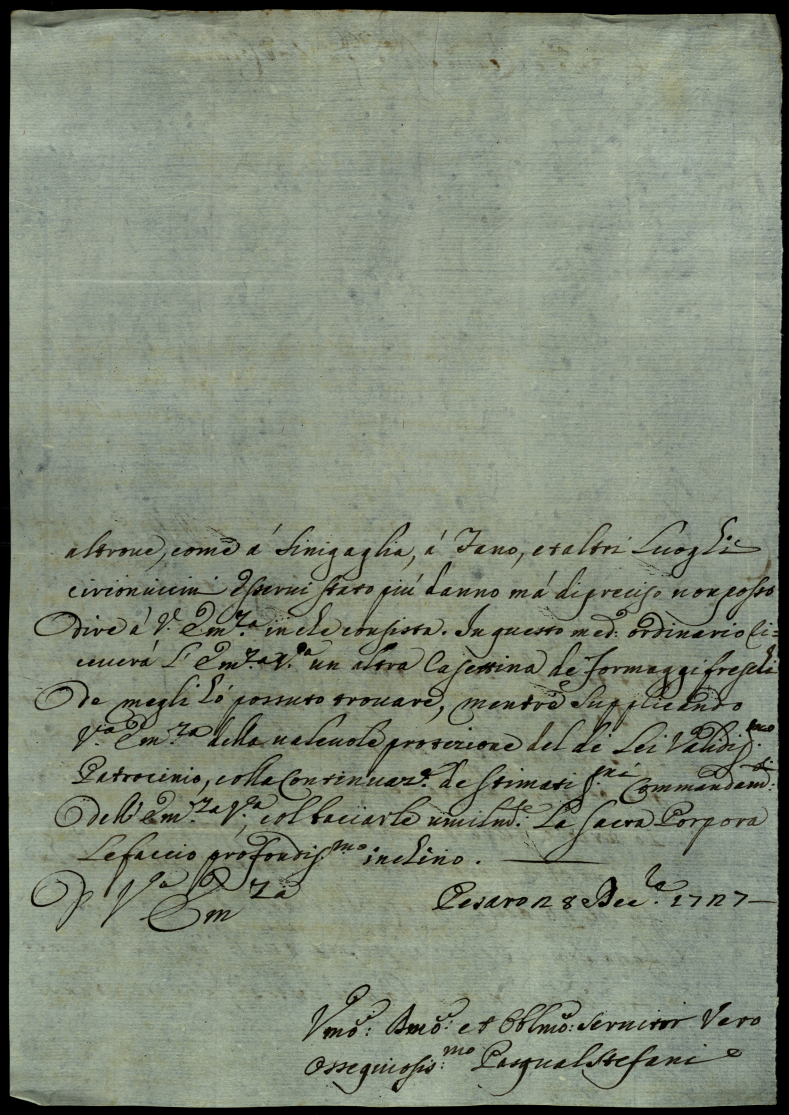 altroue, come á Sinigaglia, á Fano, et altri Luoghi
circonuicini esserui stato piú danno má di preciso non posso
dire á V.ᵃ Em.ᶻᵃ in che consista. In questo med.º ordinario ri=
ceuerá L' Em.ᶻᵃ V.ʳᵃ un altra Cassettina de formaggi freschi
de megli hó possuto trouare, mentre Supplicando
V.ʳᵃ Em.ᶻᵃ della ualeuole protezione del di Lei Validis.ᵐᵒ
Patrocinio, colla Continuaz.ᵉ de stimatis.ᵐⁱ Commandam.ᵗⁱ
dell' Em.ᶻᵃ V.ʳᵃ, col baciarle umilm.ᵗᵉ La Sacra Porpora
Le faccio profondis.ᵐᵒ inchino.
D V.ʳᵃ Em.ᶻᵃ
Pesaro 28 Dec. 1727
Vmo: Dmo: et Obblmo: Seruitor Vero
Ossequiosis.ᵐᵒ Pasqual Stefani